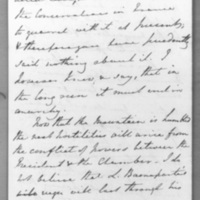 the Conservatives in France
to quarrel with it at present,
& therefore you have prudently
said nothing about it. I
however know, & say, that in
the long run it must end in
anarchy.
Now that the Mountain is humbled
the real hostilities will arise from
the conflict of powers between the
President & the Chamber. I do
not believe that L. Bonaparte's
reign will last through his